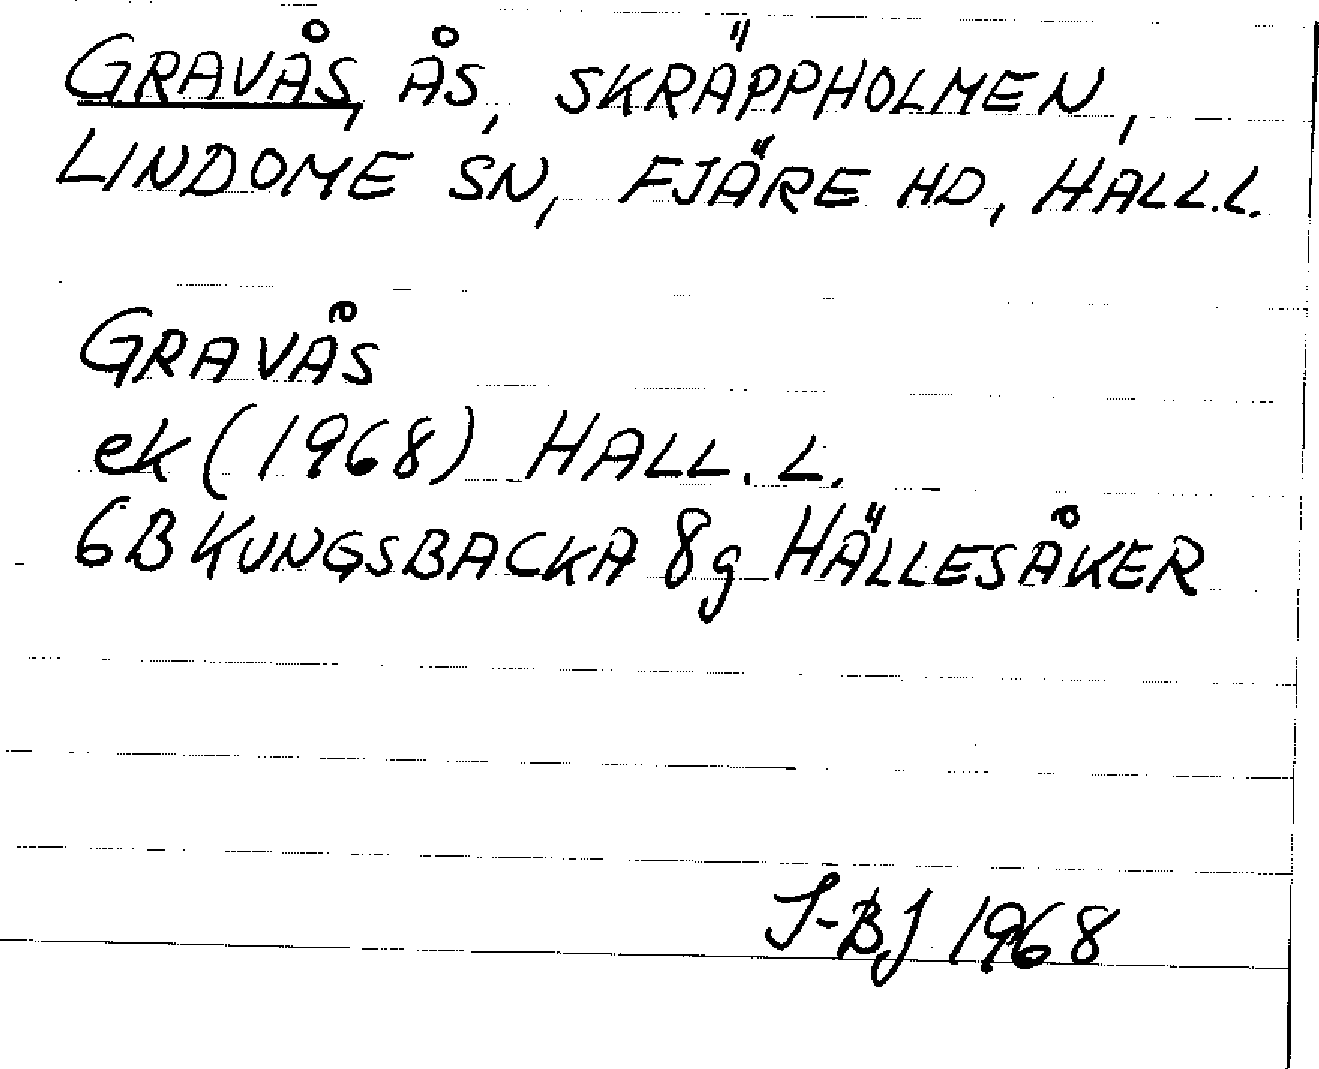 GRAVÅS, ÅS, SKRÄPPHOLMEN,
LINDOME SN, FJÄRE HD, HALL.L.
GRAVÅS
ek (1968) HALL. L.
6B KUNGSBACKA 8g HÄLLESÅKER
S-BJ 1968